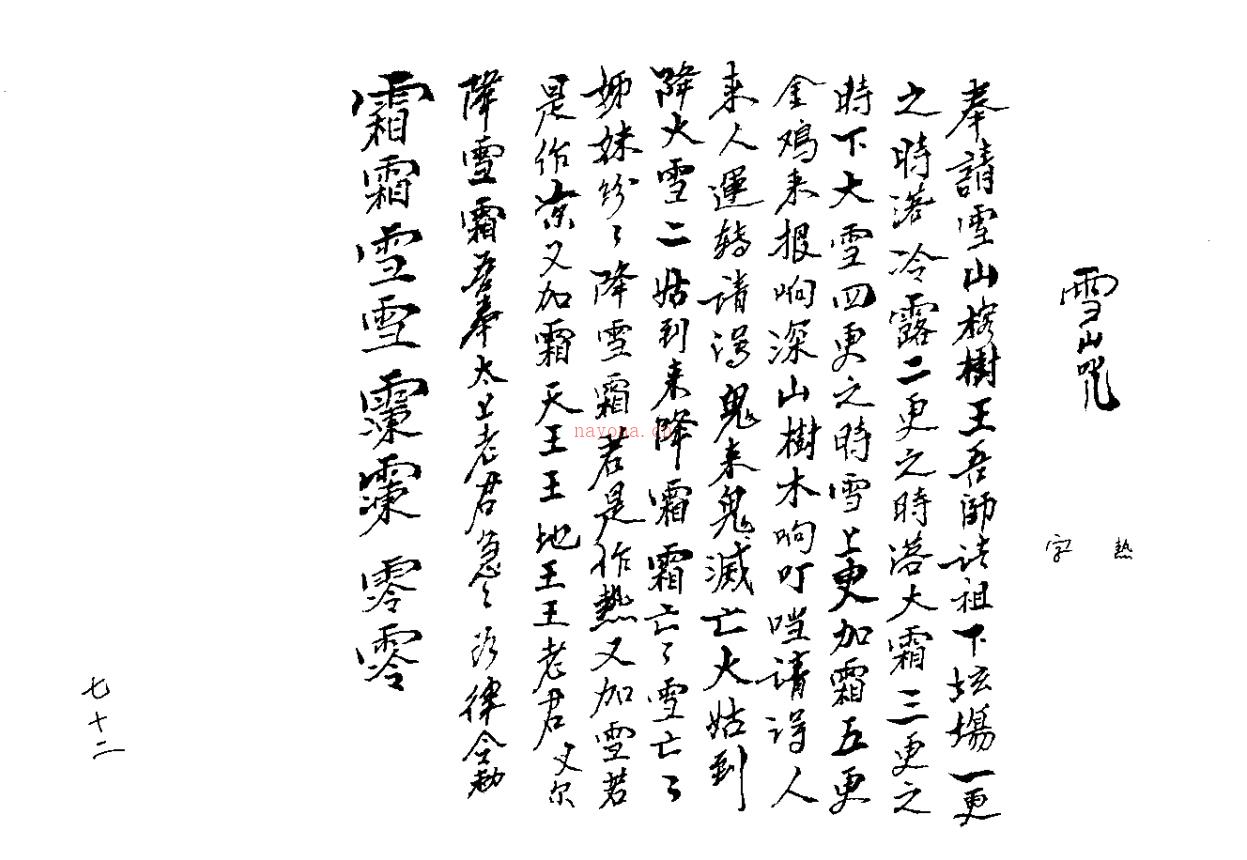 雪山咒
熱字
奉請雪山榕樹王吾師法祖下坛場一更
之時落冷露二更之時落大霜三更之
時下大雪四更之時雪上更加霜五更
金鸡来报响深山樹木响叮噹請得人
来人運转請得鬼来鬼滅亡大姑到
降大雪二姑到来降霜霜亡々雪亡々
姊妹纷々降雪霜若是作熱又加雪若
是作凉又加霜天王王地王王老君又尔
降雪霜吾奉太上老君急々律令勅
霜霜雪雪零零
七十二
nayona.cn